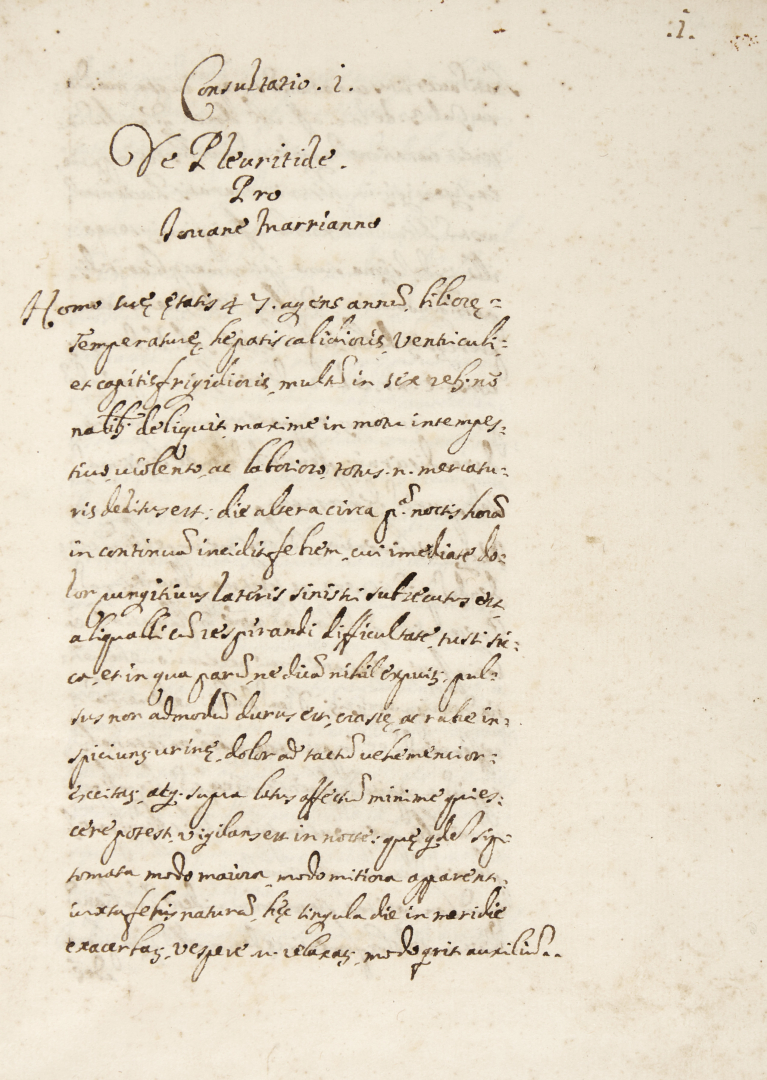 .1.
Consultatio . i .
De Pleuritide .
Pro
Iouane Marrianno
Homo suę ętatis 47 . agens annū, biliorę =
Temperaturę, hepatis calidioris, ventriculi =
et capitis frigidioris, multū in sex reb; nō
natlib; deliquit, maxime in motu intempes =
tiuo, uiolento, ac laborioso, totus . n . mercatu =
ris deditus est : die altera circa pā noctis horā
in continuā incidit febrem, cui imediate do =
lor pungitiuus lateris sinistri subsecutus est
aliquali cū respirandi difficultate, tusti sic =
ca, et in qua parū, ne dicā nihil expuit; pul =
sus non admodū durus est, crasię, ac rubę in =
spiciunt urinę, dolor ad tactū vehemencior =
excitat, atq; supra latus affectū minime quies =
cere potest, vigilans est in nocte : quę qdē sip =
tomata modo maiora, modo mitiora apparent,
iuxta febris naturā, hęc singula die in meridie
exacerbat, vespere u . relaxat, modo qrit auxiliū . .